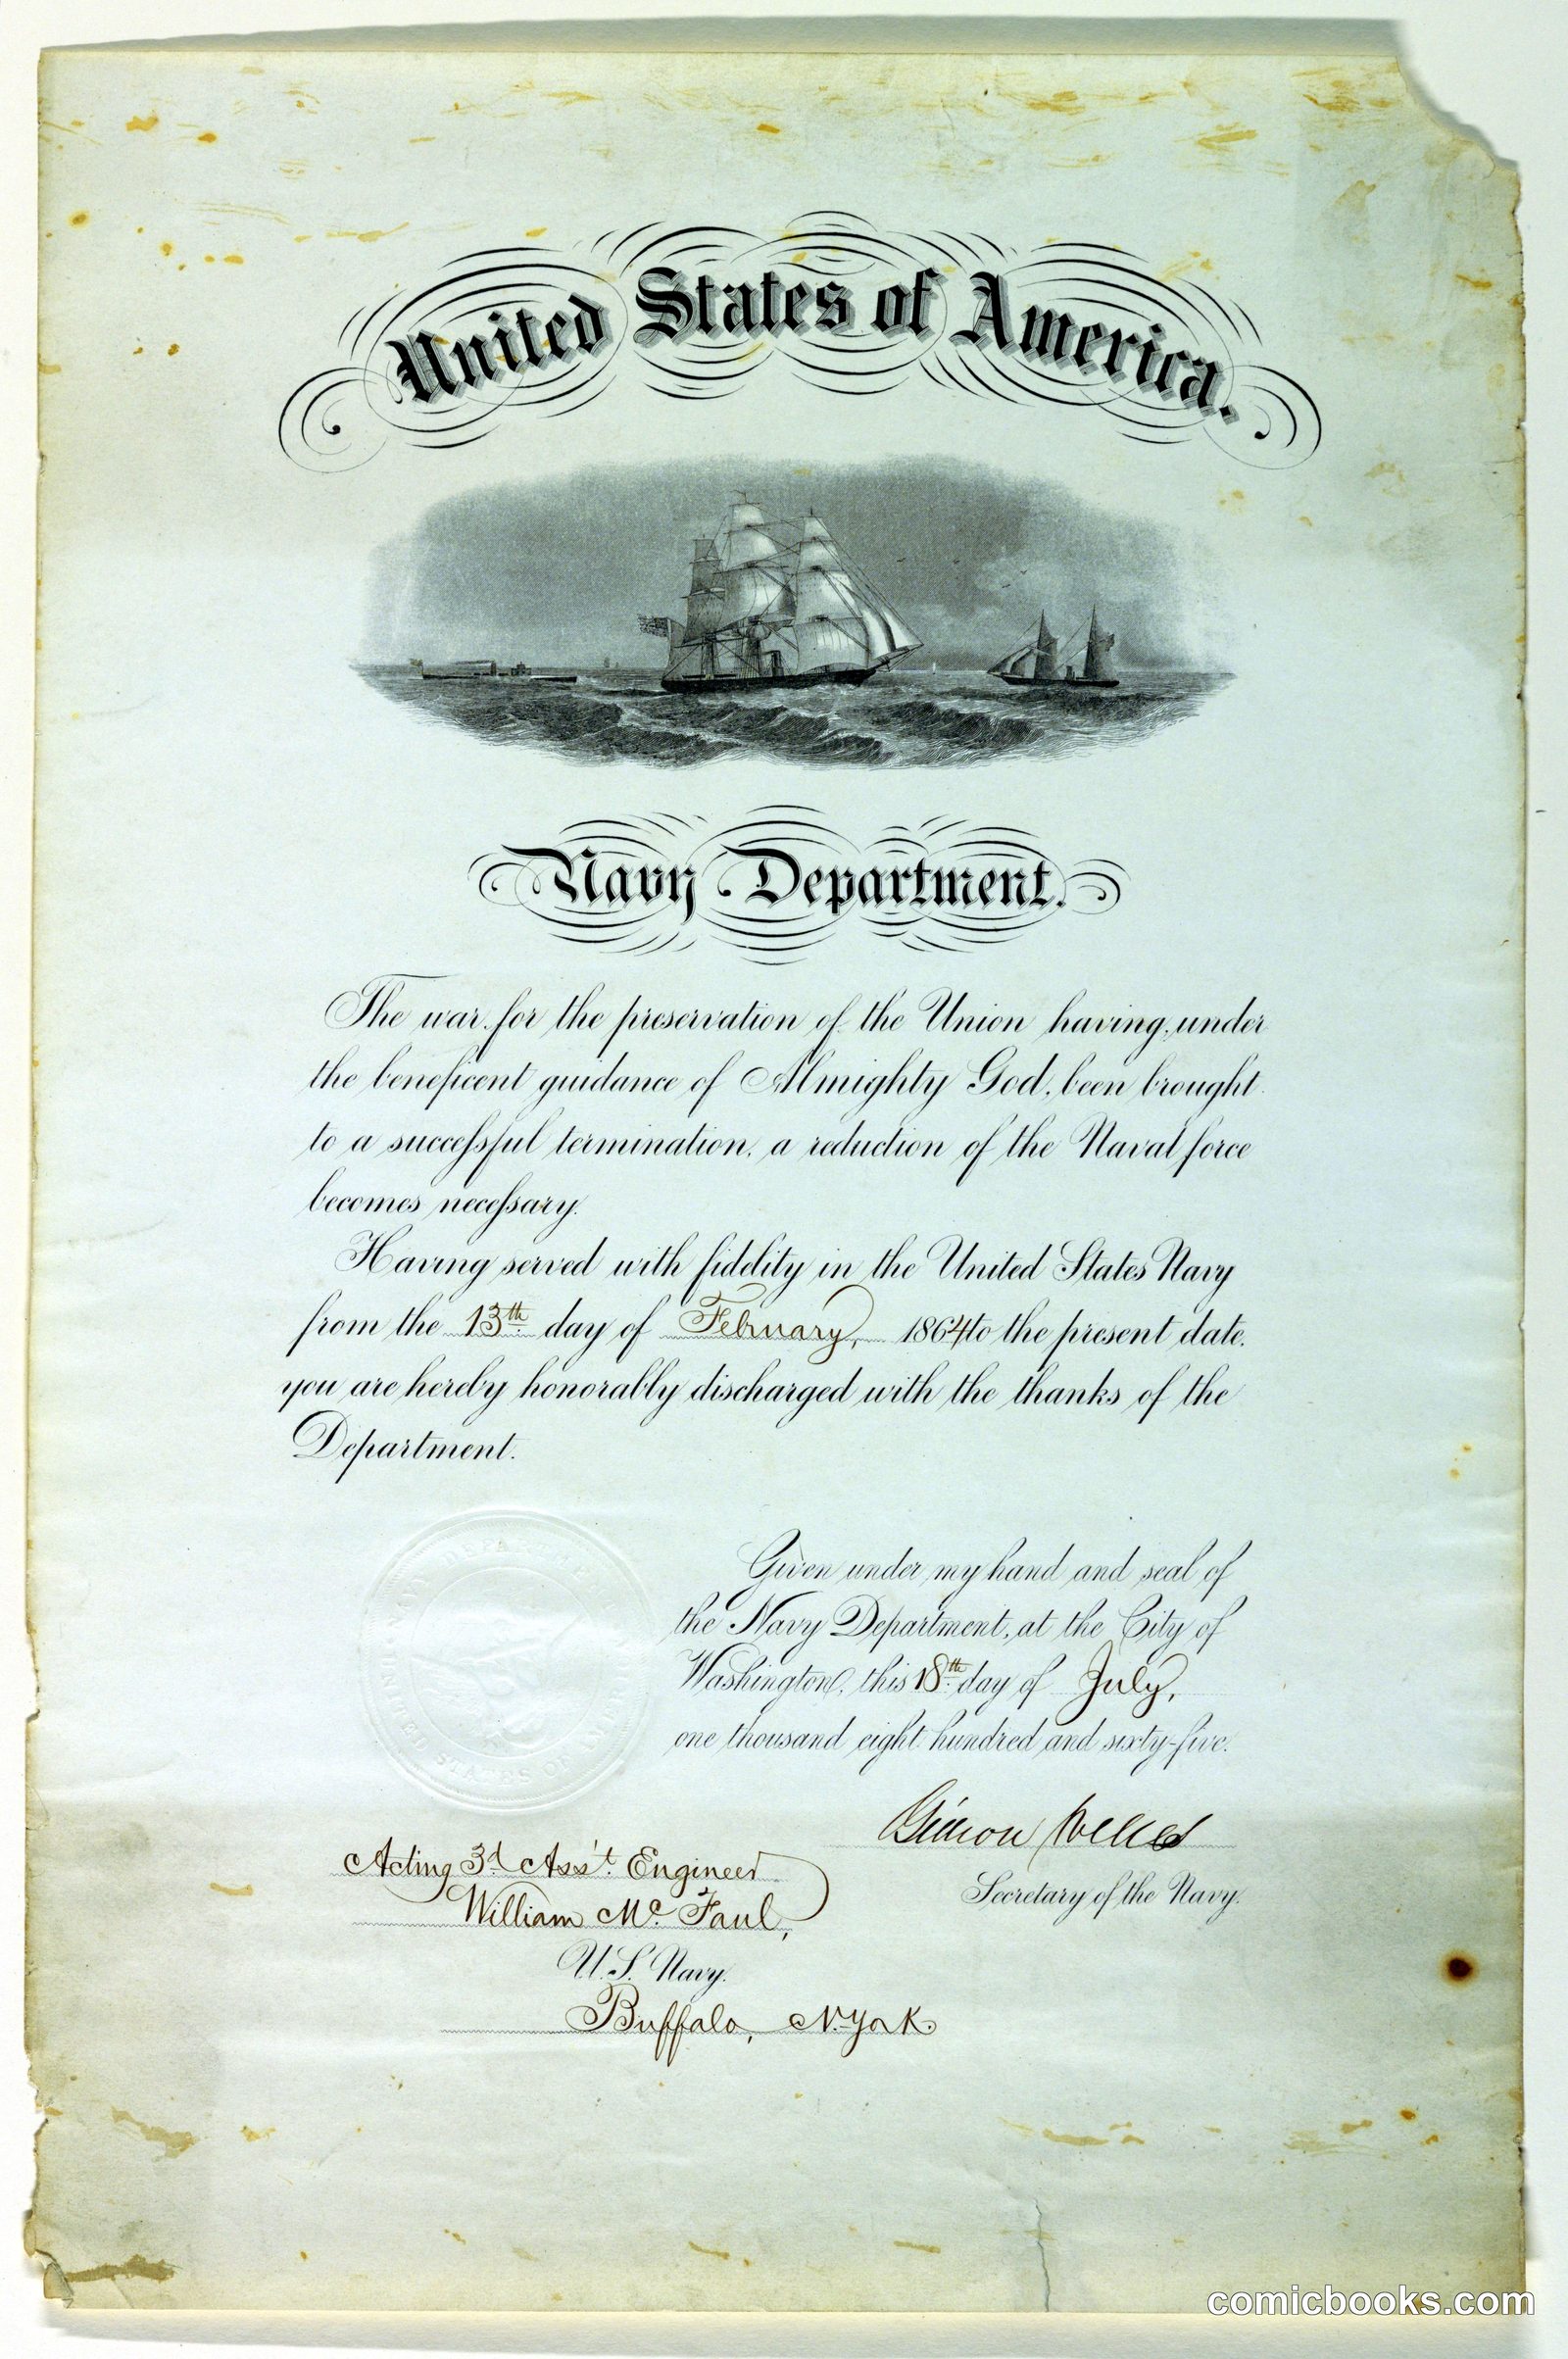 United States of America.
Navy Department.
The war for the preservation of the Union having, under
the beneficent guidance of Almighty God, been brought
to a successful termination, a reduction of the Naval force
becomes necessary.
Having served with fidelity in the United States Navy
from the 13th day of February, 1864 to the present date,
you are hereby honorably discharged with the thanks of the
Department.
Given under my hand and seal of
the Navy Department, at the City of
Washington, this 18th day of July,
one thousand eight hundred and sixty-five.
Gideon Welles
Secretary of the Navy.
Acting 3d Ass't. Engineer
William Mc. Faul,
U.S. Navy.
Buffalo, N. York.
comicbooks.com